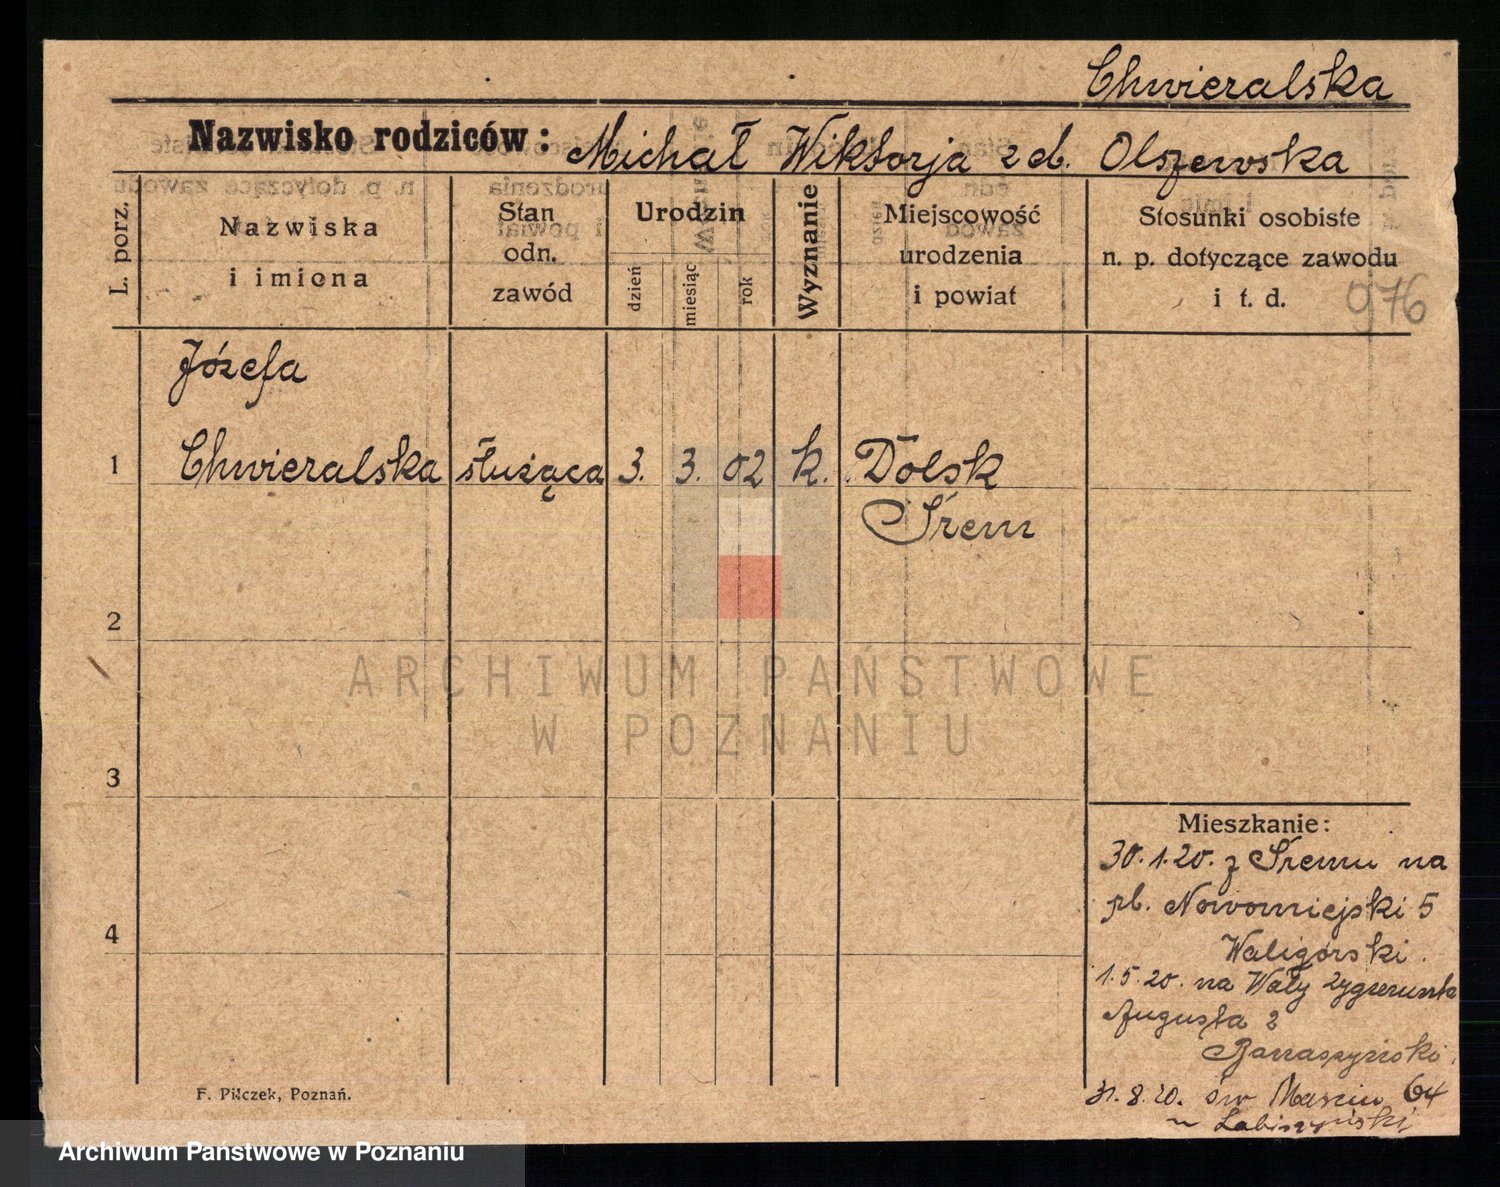 Chwieralska
Nazwisko rodziców: Michał Wiktorja z d. Olszewska
L. porz.
Nazwiska
i imiona
Stan
odn.
zawód
Urodzin
dzień
miesiąc
rok
Wyznanie
Miejscowość
urodzenia
i powiat
Stosunki osobiste
n. p. dotyczące zawodu
i t. d.
976
Józefa
1 Chwieralska służąca 3. 3. 02 k. Dolsk
Śrem
2
3
4
ARCHIWUM PAŃSTWOWE
W POZNANIU
Mieszkanie:
30.1.20. z Śremu na
pl. Nowomiejski 5
Waligórski.
1.5.20. na Wały Zygmunta
Augusta 2
31.8.20. św Marcin 64
F. Pilczek, Poznań.
Archiwum Państwowe w Poznaniu